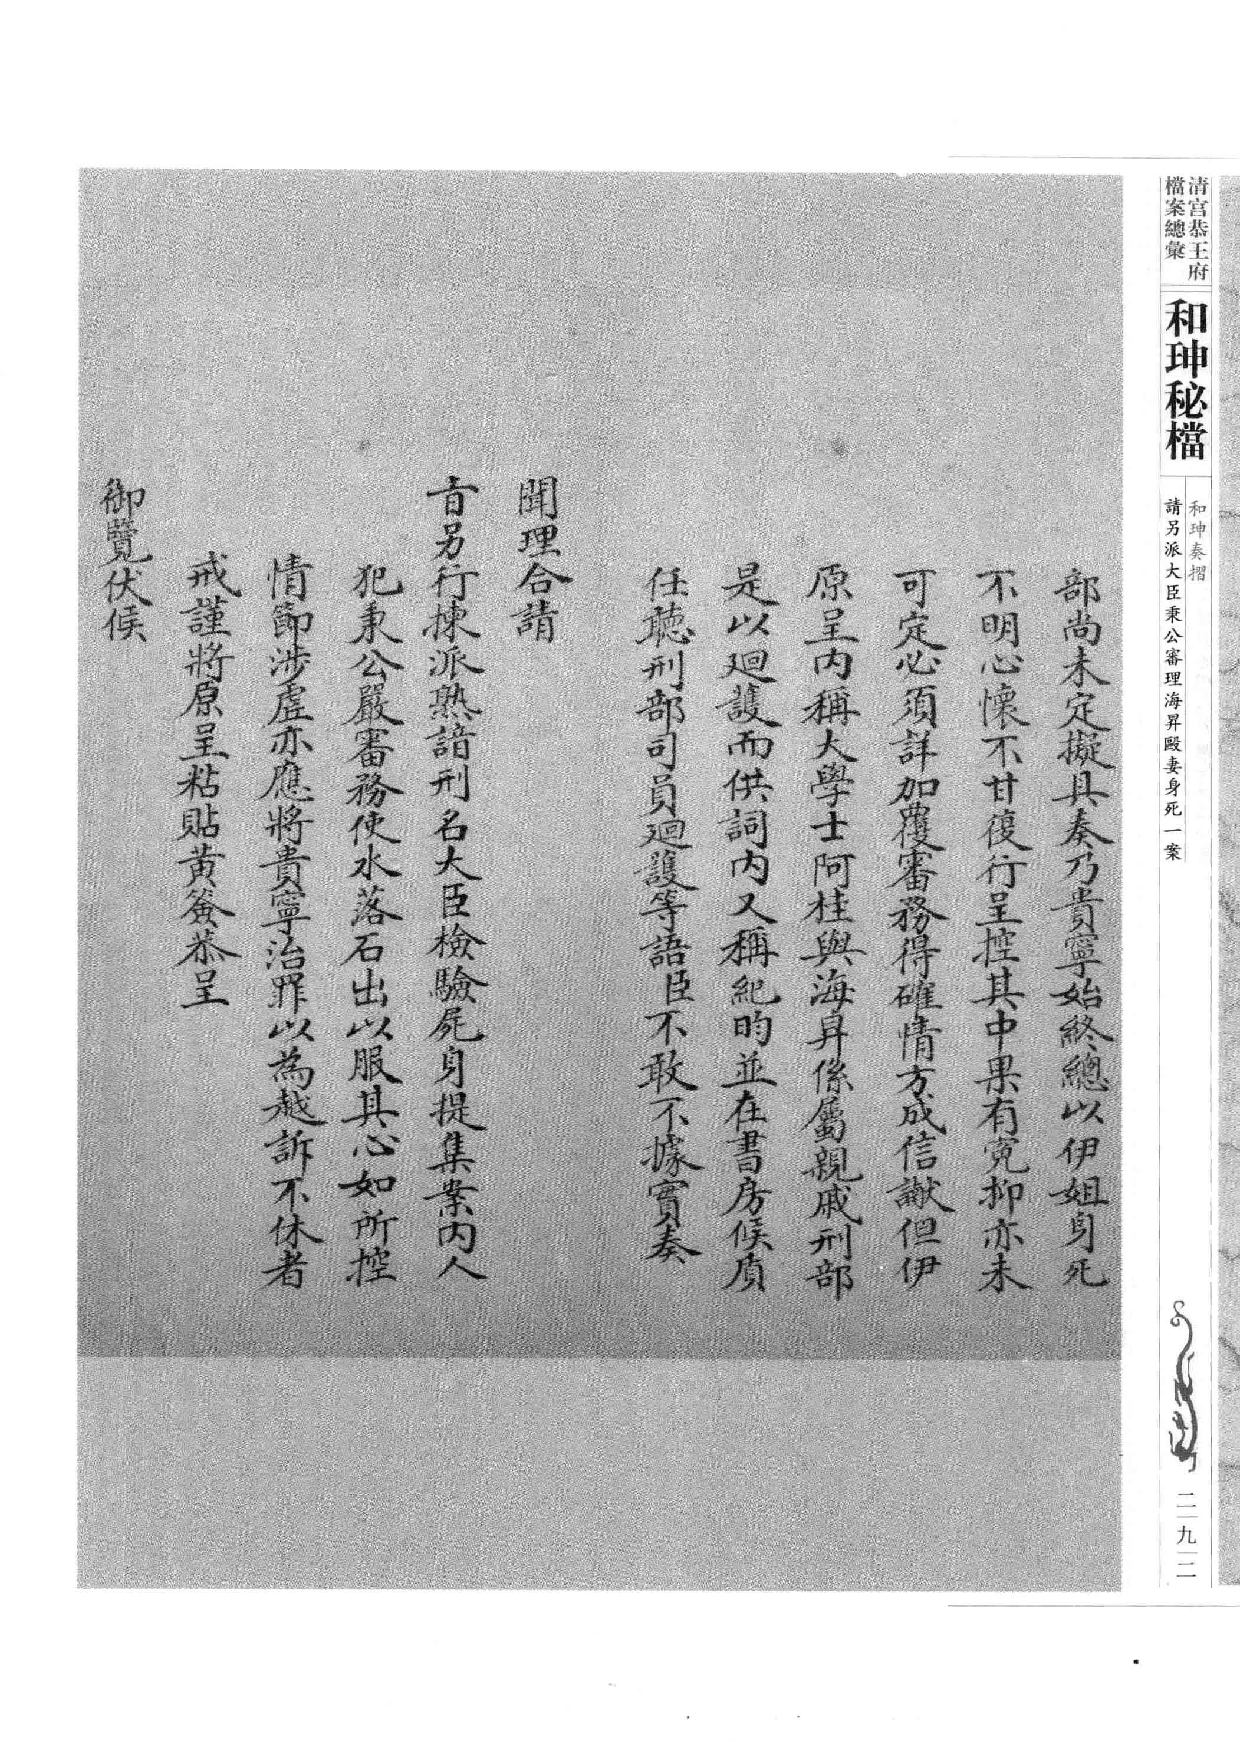 清宮恭王府
檔案總彙
和珅秘檔
和珅奏摺
請另派大臣秉公審理海昇毆妻身死一案
二九二
部尚未定擬具奏乃貴寧始終總以伊姐身死
不明心懷不甘復行呈控其中果有冤抑亦未
可定必須詳加覆審務得確情方成信讞但伊
原呈內稱大學士阿桂與海昇係屬親戚刑部
是以迴護而供詞內又稱紀昀並在書房候質
任聽刑部司員迴護等語臣不敢不據實奏
聞理合請
旨另行揀派熟諳刑名大臣檢驗屍身提集案內人
犯秉公嚴審務使水落石出以服其心如所控
情節涉虛亦應將貴寧治罪以為越訴不休者
戒謹將原呈粘貼黃簽恭呈
御覽伏候